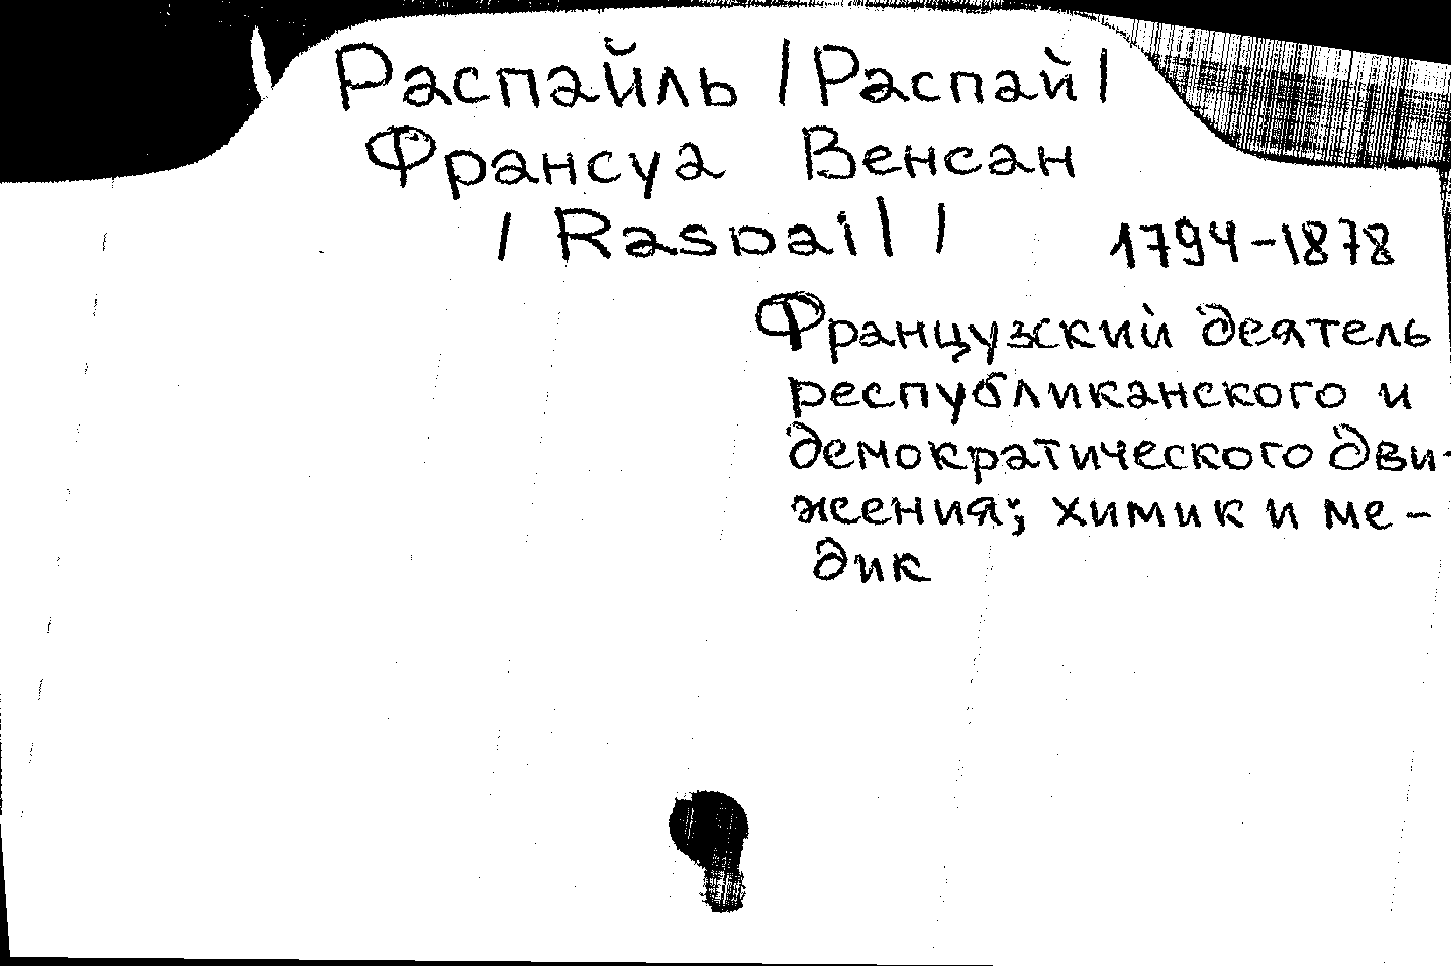 Распайль /Распай/
Франсуа Венсан
/ Raspail /
1794-1878
Французский деятель
республиканского и
демократического дви-
жения; химик и ме-
дик